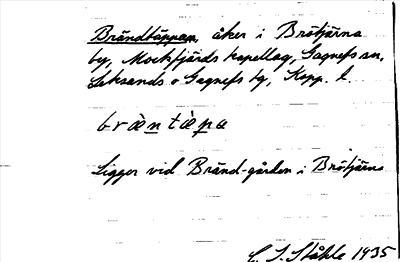 Brändtäppan, åker i Brötjärna
by, Mockfjärds kapellag, Gagnefs sn,
Leksands o Gagnefs tg, Kopp. l.
bràntàpa
Ligger vid Bränd-gården i Brötjärna
C. I. Ståhle 1935